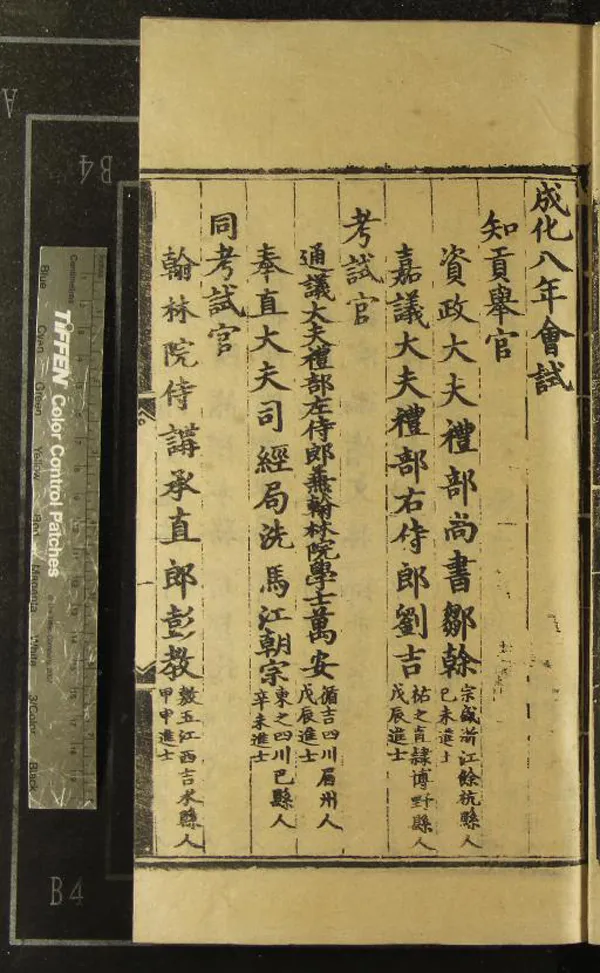 成化八年會試
知貢舉官
資政大夫禮部尚書鄒榦 宗盛浙江餘杭縣人 己未進士
嘉議大夫禮部右侍郎劉吉 祐之直隸博野縣人 戊辰進士
考試官
通議大夫禮部左侍郎蕪翰林院學士萬安 循吉四川眉州人 戊辰進士
奉直大夫司經局洗馬江朝宗 東之四川巴縣人 辛未進士
同考試官
翰林院侍講承直郎彭教 敷五江西吉水縣人 甲申進士
B4
A
B4
TIFFEN Color Control Patches
Centimetres
Blue
Cyan
Green
Yellow
Red
Magenta
White
3/Color
Black